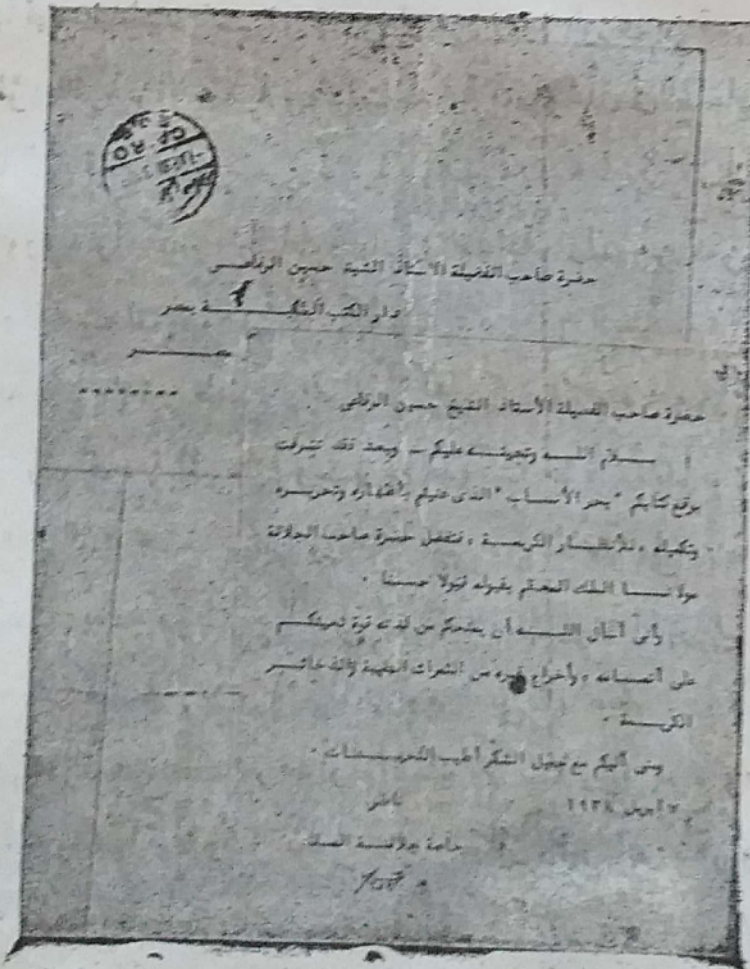 حضرة صاحب الفضيلة الاستاذ الشيخ حسين الرفاعى
دار الكتب بمصر
مصر
حضرة صاحب الفضيلة الأستاذ الشيخ حسين الرفاعى
سلام اللـه عليكم ـ وبعد فقد تشرفت
برفع كتابكم "بحر الأنساب" الذى عنيتم بأظهاره وتحريره
وتكميله ، للأنظار الكريمة ، فتفضل حضرة صاحب الجلالة
مولانا الملك المعظم بقبوله قبولا حسنا .
وأنى أسأل اللـه أن يمنحكم من لدنه قوة تعينكم
على أتمامه ، وأخراج غيره من الثمرات والذخائر
الكريمة .
ومنى أليكم مع جميل الشكر أطيب التحيات .
٧ أبريل ١٩٣٨ ناظر
خاصة جلالة الملك